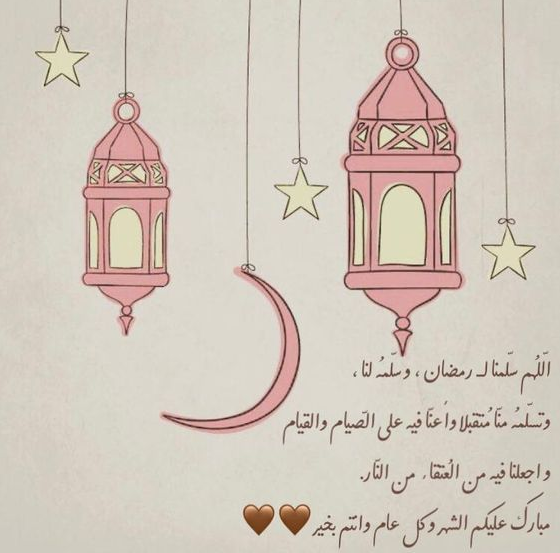 اللّهم سلّمنا لـ رمضان ، وسلّمهُ لنا ،
وتسلّمهُ منّا مُتقبلا وأعنّا فيه على الصّيام والقيام
واجعلنا فيه من العُتقاء من النّار.
مبارك عليكم الشهر وكل عام وانتم بخير 🤎🤎